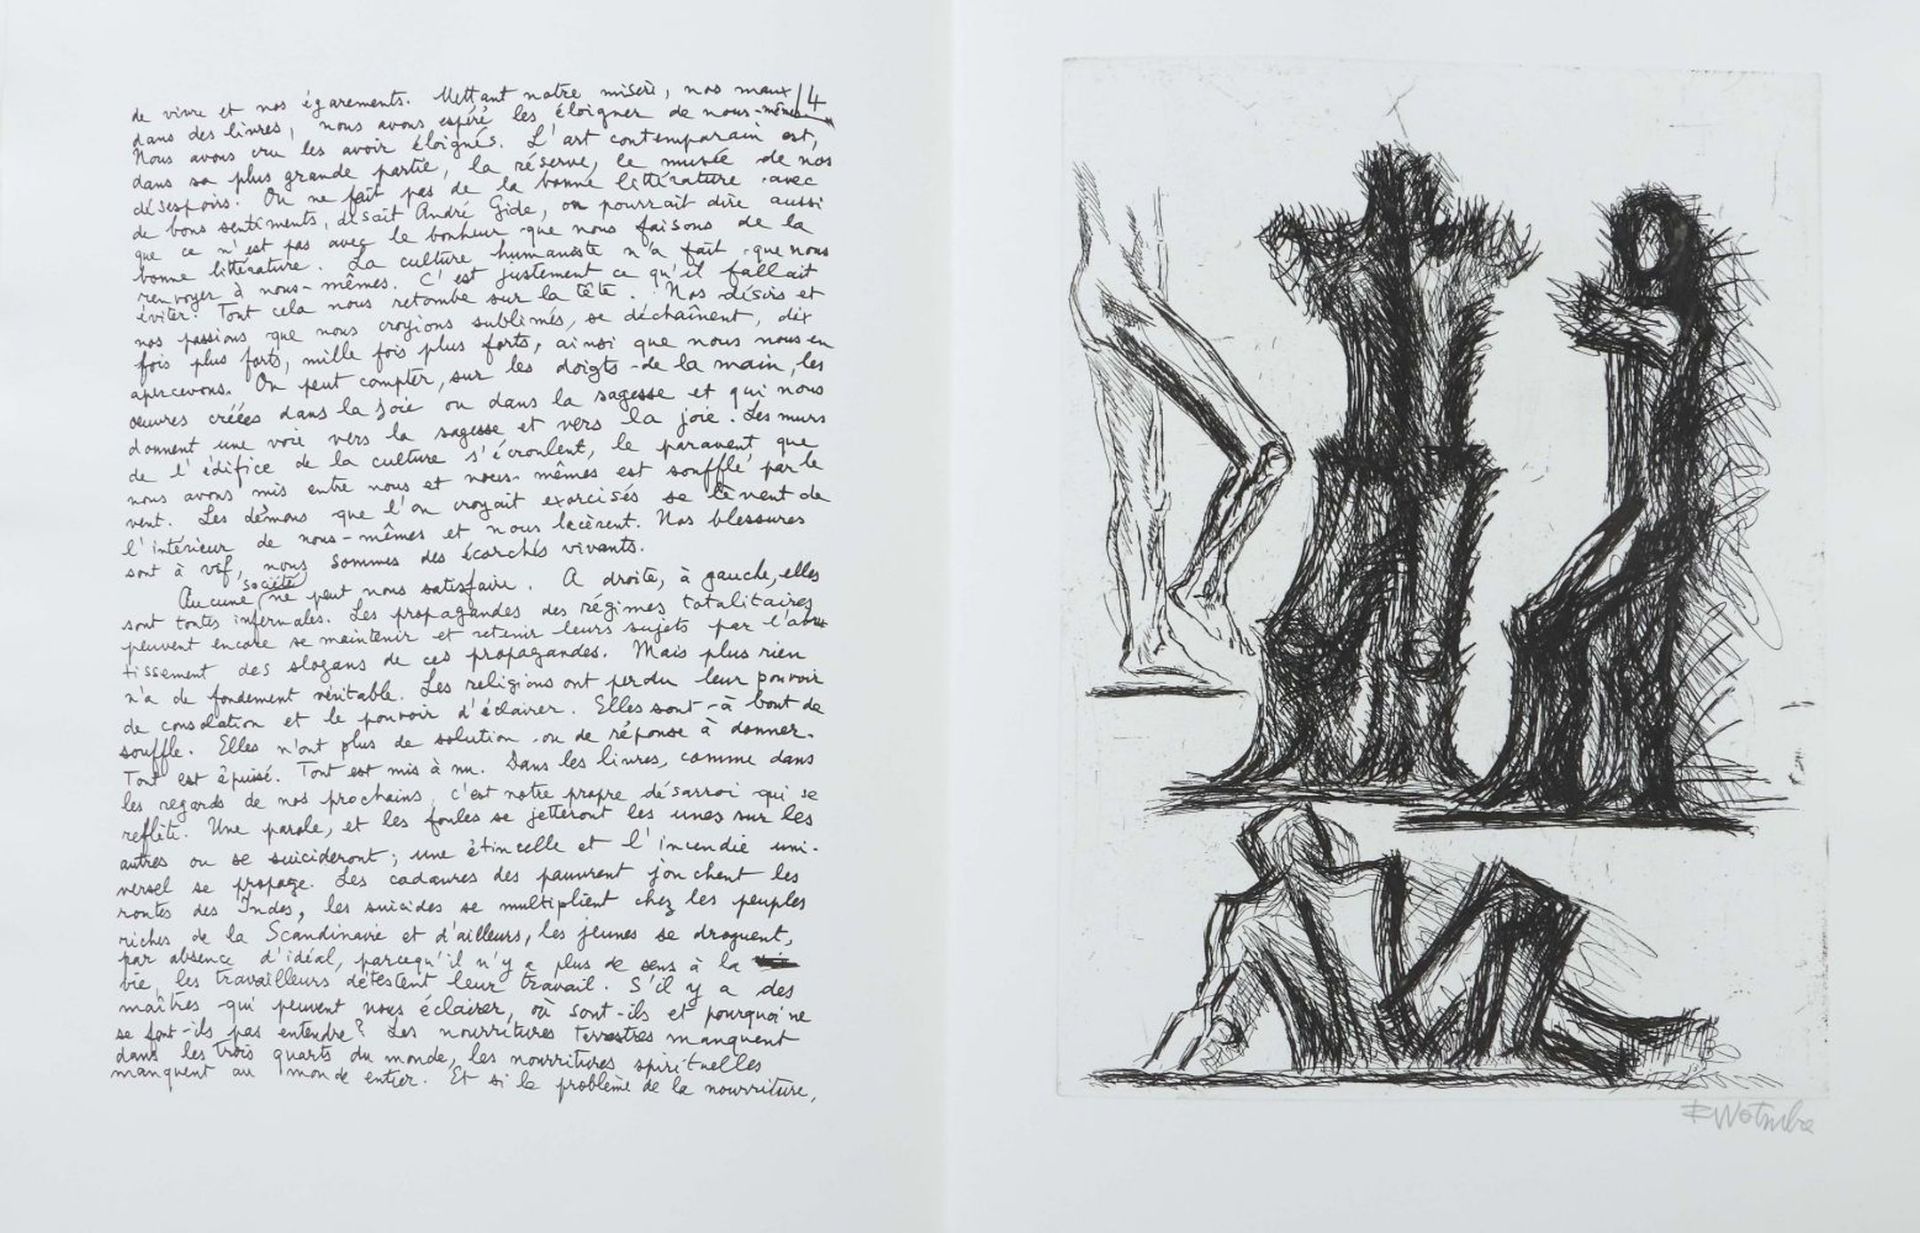 de vivre et nos égarements. Mettant notre misère, nos maux
14
dans des livres, nous avons espéré les éloigner de nous-mêmes.
Nous avons cru les avoir éloignés. L'art contemporain est,
dans sa plus grande partie, la réserve, le musée de nos
désespoirs. On ne fait pas de la bonne littérature avec
de bons sentiments, disait André Gide, on pourrait dire aussi
que ce n'est pas avec le bonheur que nous faisons de la
bonne littérature. La culture humaniste n'a fait que nous
renvoyer à nous-mêmes. C'est justement ce qu'il fallait
éviter. Tout cela nous retombe sur la tête. Nos désirs et
nos passions que nous croyions sublimés, se déchaînent, dix
fois plus forts, mille fois plus forts, ainsi que nous nous en
apercevons. On peut compter, sur les doigts de la main, les
œuvres créées dans la joie ou dans la sagesse et qui nous
donnent une voie vers la sagesse et vers la joie. Les murs
de l'édifice de la culture s'écroulent, le paravent que
nous avons mis entre nous et nous-mêmes est soufflé par le
vent. Les démons que l'on croyait exorcisés se lèvent de
l'intérieur de nous-mêmes et nous lacèrent. Nos blessures
sont à vif, nous sommes des écorchés vivants.
Aucune société ne peut nous satisfaire. A droite, à gauche, elles
sont toutes infernales. Les propagandes des régimes totalitaires
peuvent encore se maintenir et retenir leurs sujets par l'abru
tissement des slogans de ces propagandes. Mais plus rien
n'a de fondement véritable. Les religions ont perdu leur pouvoir
de consolation et le pouvoir d'éclairer. Elles sont à bout de
souffle. Elles n'ont plus de solution ou de réponse à donner.
Tout est épuisé. Tout est mis à nu. Dans les livres, comme dans
les regards de nos prochains, c'est notre propre désarroi qui se
reflète. Une parole, et les foules se jetteront les unes sur les
autres ou se suicideront ; une étincelle et l'incendie uni-
versel se propage. Les cadavres des pauvrent jonchent les
routes des Indes, les suicides se multiplient chez les peuples
riches de la Scandinavie et d'ailleurs, les jeunes se droguent,
par absence d'idéal, parcequ'il n'y a plus de sens à la
vie, les travailleurs détestent leur travail. S'il y a des
maîtres qui peuvent nous éclairer, où sont-ils et pourquoi ne
se font-ils pas entendre? Les nourritures terrestres manquent
dans les trois quarts du monde, les nourritures spirituelles
manquent au monde entier. Et si le problème de la nourriture,
RWotruba